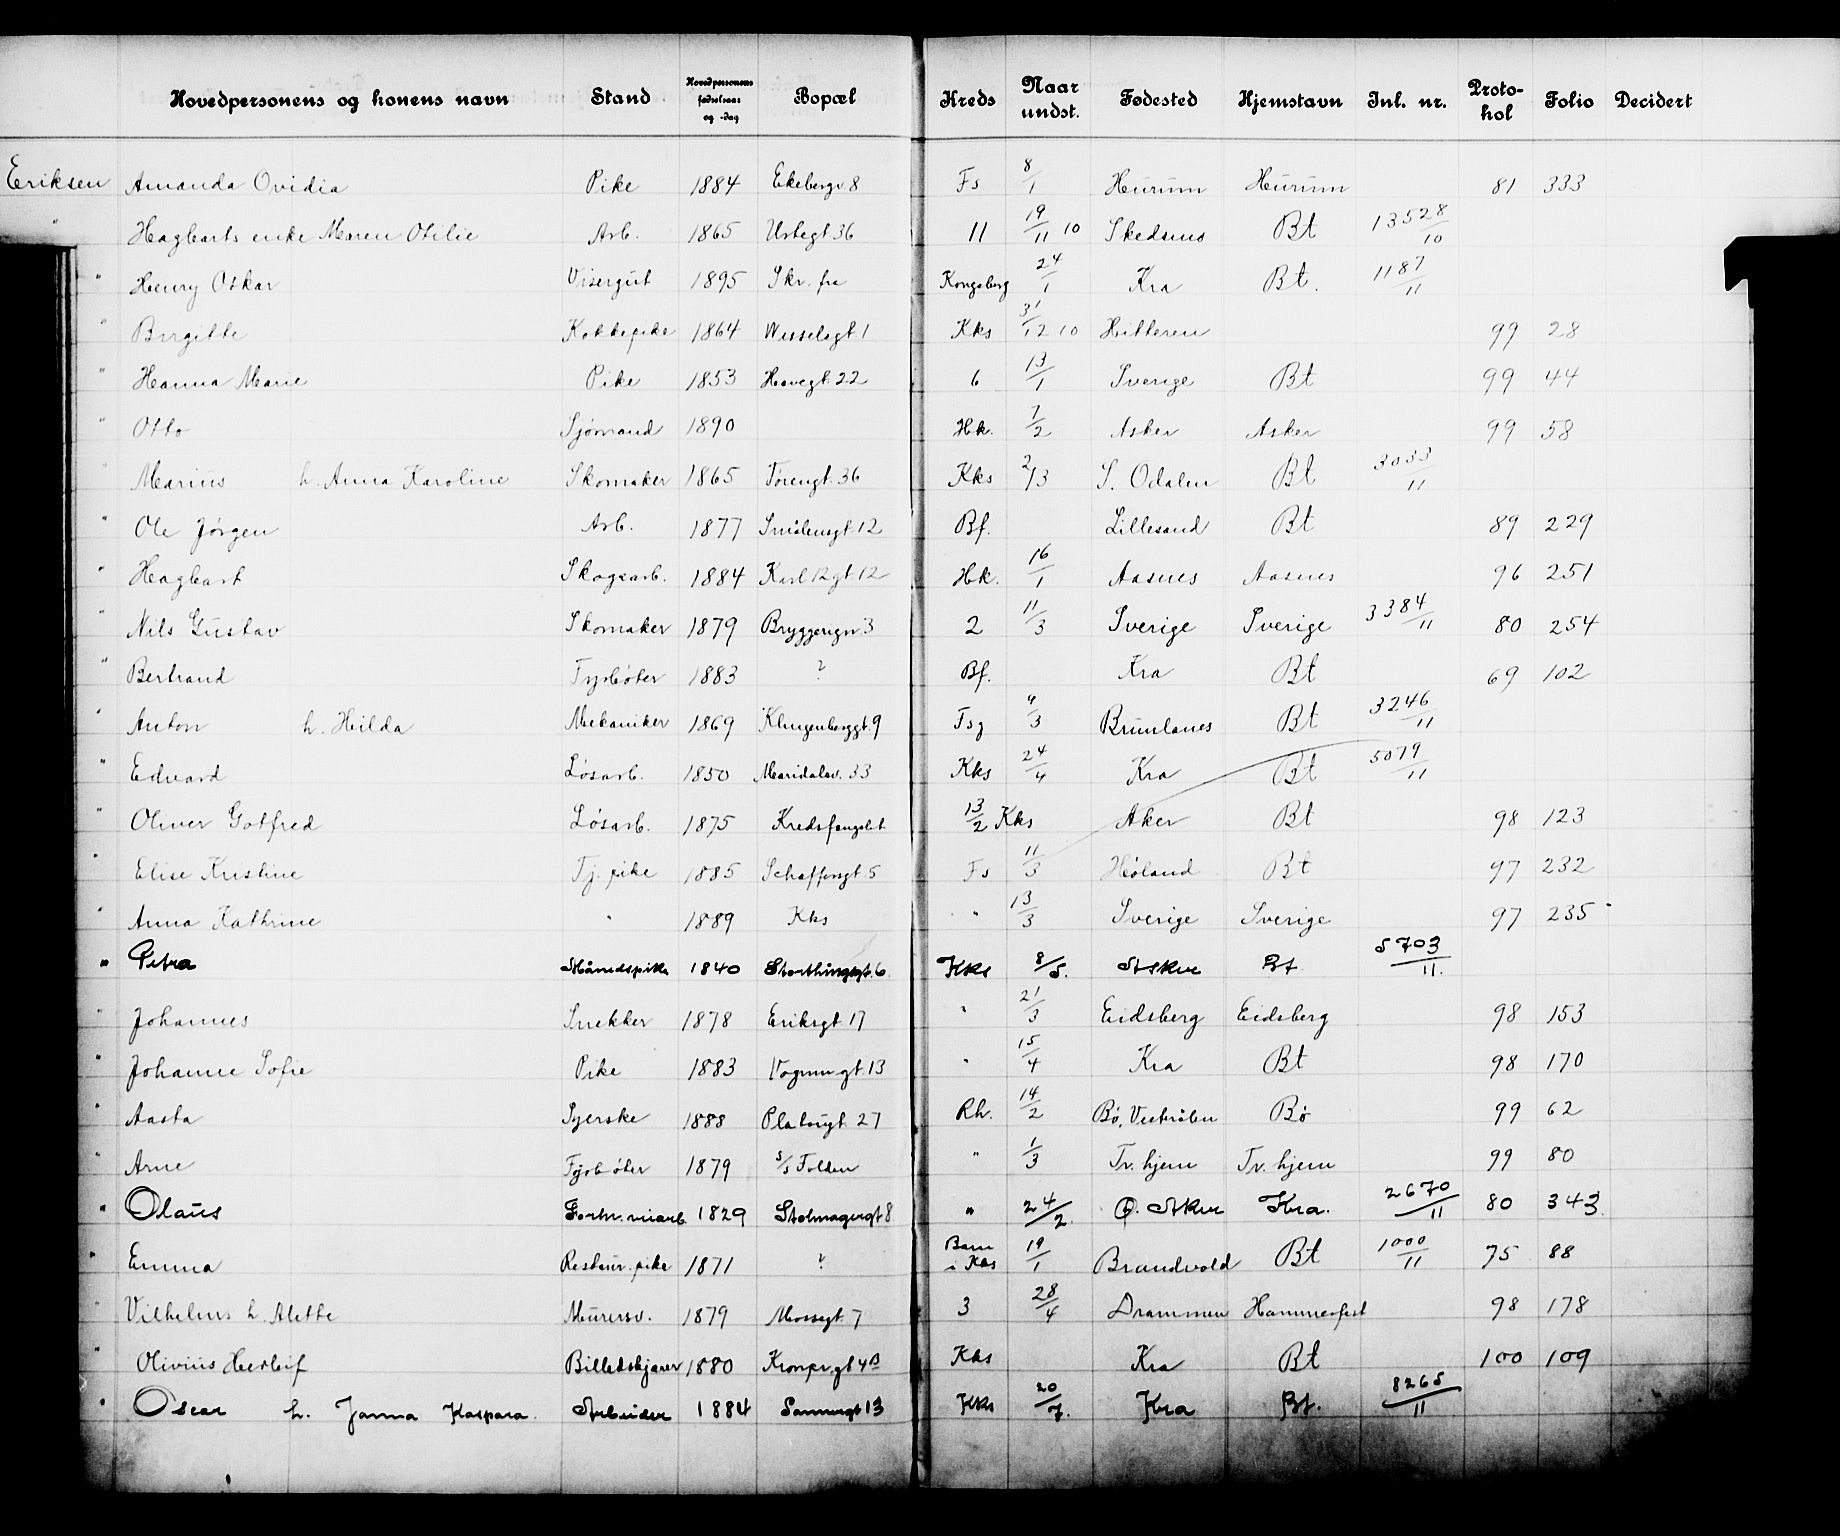 Hovedpersonens og konens navn Stand Hovedpersonens fødselsaar og -dag Bopæl Kreds Naar undst. Fødested Hjemstavn Inl. nr. Protokol Folio Decidert
Eriksen Amanda Ovidia Pike 1884 Ekebergv. 8 Fs 8/1 Hurum Hurum 81 333
" Hagbarts enke Maren Otilie Arb. 1865 Urtegt. 36 11 19/11 10 Skedsmo Bt 13528/10
" Henry Oskar Visergut 1895 Skr. fra Kongsberg 24/1 Kra Bt. 1187/11
" Birgitte Kokkepike 1864 Wesselsgt. 1 Kks 31/12 10 Hitteren 99 28
" Hanna Marie Pike 1853 Havegt. 22 6 13/1 Sverige Bt 99 44
" Otto Sjømand 1890 Hk. 7/2 Asker Asker 99 58
" Marius h. Anna Karoline Skomaker 1865 Torengt. 36 Kks 2/3 S. Odalen Bt 3033/11
" Ole Jørgen Arb. 1877 Smålensgt. 12 Bf. Lillesand Bt 89 229
" Hagbart Skogsarb. 1884 Karl 12 gt. 12 Hk. 16/1 Aasnes Aasnes 96 251
" Nils Gustav Skomaker 1879 Bryggerign 3 2 11/3 Sverige Sverige 3384/11 80 254
" Bertrand Fyrbøter 1883 ? Bf. Kra Bt 69 102
" Anton h. Hilda Mekaniker 1869 Klingenberggt. 9 Fsg 9/3 Brunlanes Bt 3246/11
" Edvard Løsarb. 1850 Maridalsv. 33 Kks 24/4 Kra Bt 5079/11
" Oliver Gotfred Løsarb. 1875 Kredsfængslet 13/2 Kks Aker Bt 98 123
" Elise Kristine Tj. pike 1885 Schaffersgt 5 Fs 11/3 Høland Bt 97 232
" Anna Kathrine " 1889 Kks " 13/3 Sverige Sverige 97 235
" Petra Månedspike 1840 Storthingsgt. 6 Kks 8/5. Asker Bt. 5703/11.
" Johannes Snekker 1878 Eriksgt 17 " 21/3 Eidsberg Eidsberg 98 153
" Johanne Sofie Pike 1883 Vognmgt. 13 " 15/4 Kra Bt 98 170
" Aasta Syerske 1888 Platougt. 27 Rh. 14/2 Bø, Vestrålen Bø 99 62
" Arne Fyrbøter 1879 s/s Folden " 1/3 Tv. hjem Tv. hjem 99 80
" Olaus Forhv. 1829 Stolmagergt 8 " 24/2. Ø. Aker Kra. 2670/11 80 343
" Emma Restaur. pike 1871 ? Barn i Kks 19/1 Brandvold Bt 1000/11 75 88
" Vilhelms h. Alette Murersv. 1879 Mossegt. 7 3 28/4 Drammen Hammerfest 98 178
" Olivius Herleif Billedskjærer 1880 Kronpr. gt 4B Kks Kra Bt 100 109
" Oscar h. Janna Kaspara. Arbeider 1884 Sannergt 13 Kks 20/7. Kra Bt. 8265/11